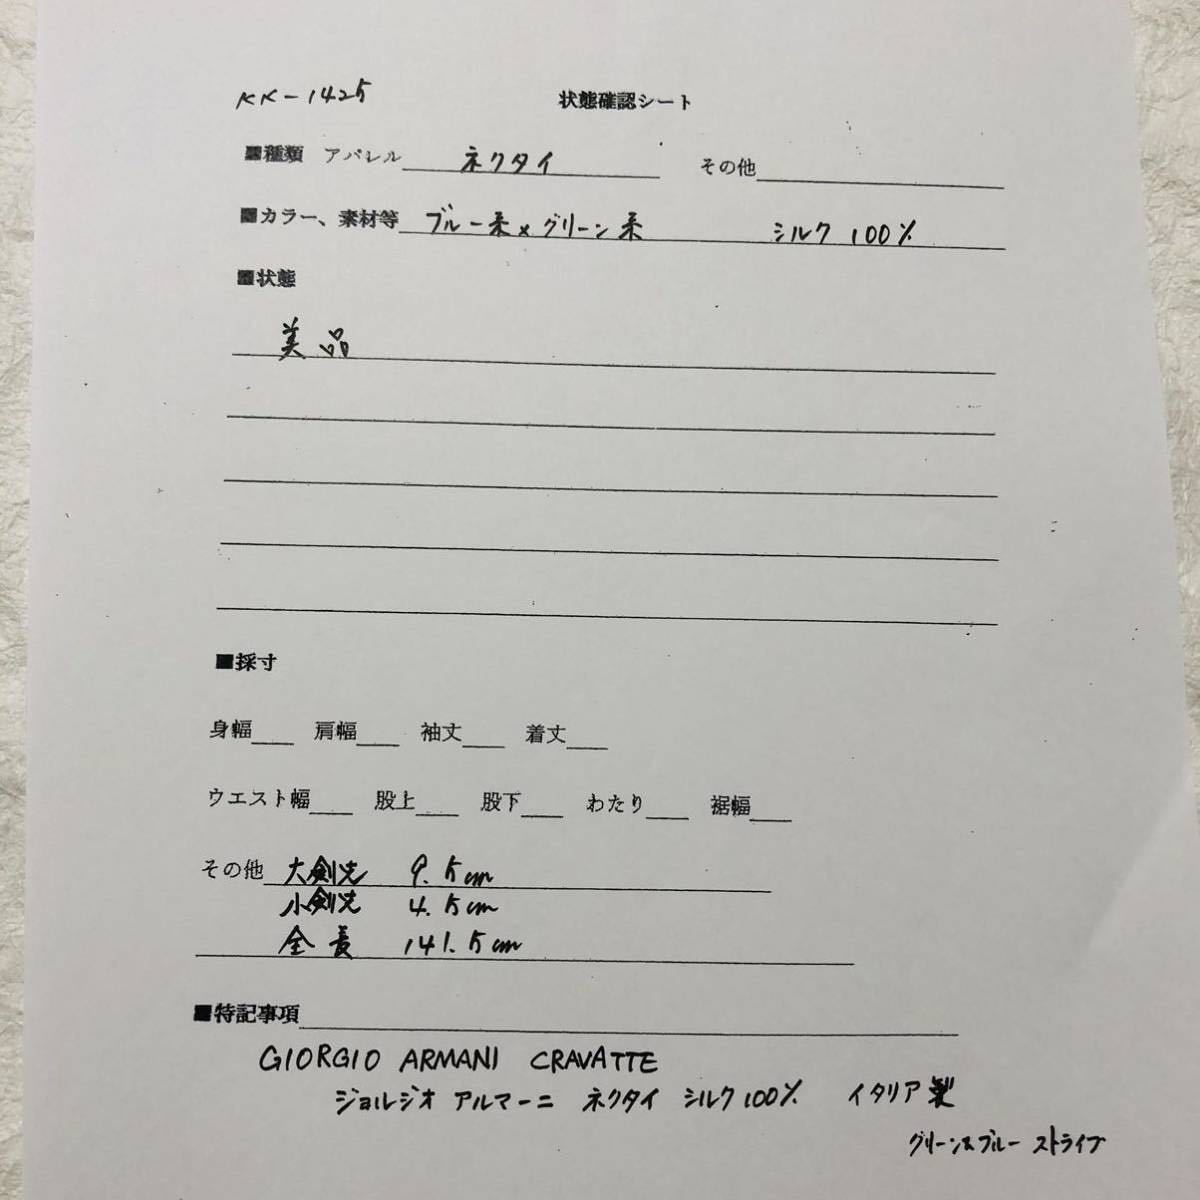 KK-1425 状態確認シート
■種類 アパレル ネクタイ その他
■カラー、素材等 ブルー系×グリーン系 シルク 100%
■状態
美品
■採寸
身幅 肩幅 袖丈 着丈
ウエスト幅 股上 股下 わたり 裾幅
その他 大剣先 9.5cm
小剣先 4.5cm
全長 141.5cm
■特記事項
GIORGIO ARMANI CRAVATTE
ジョルジオ アルマーニ ネクタイ シルク100% イタリア製
グリーン&ブルー ストライプ